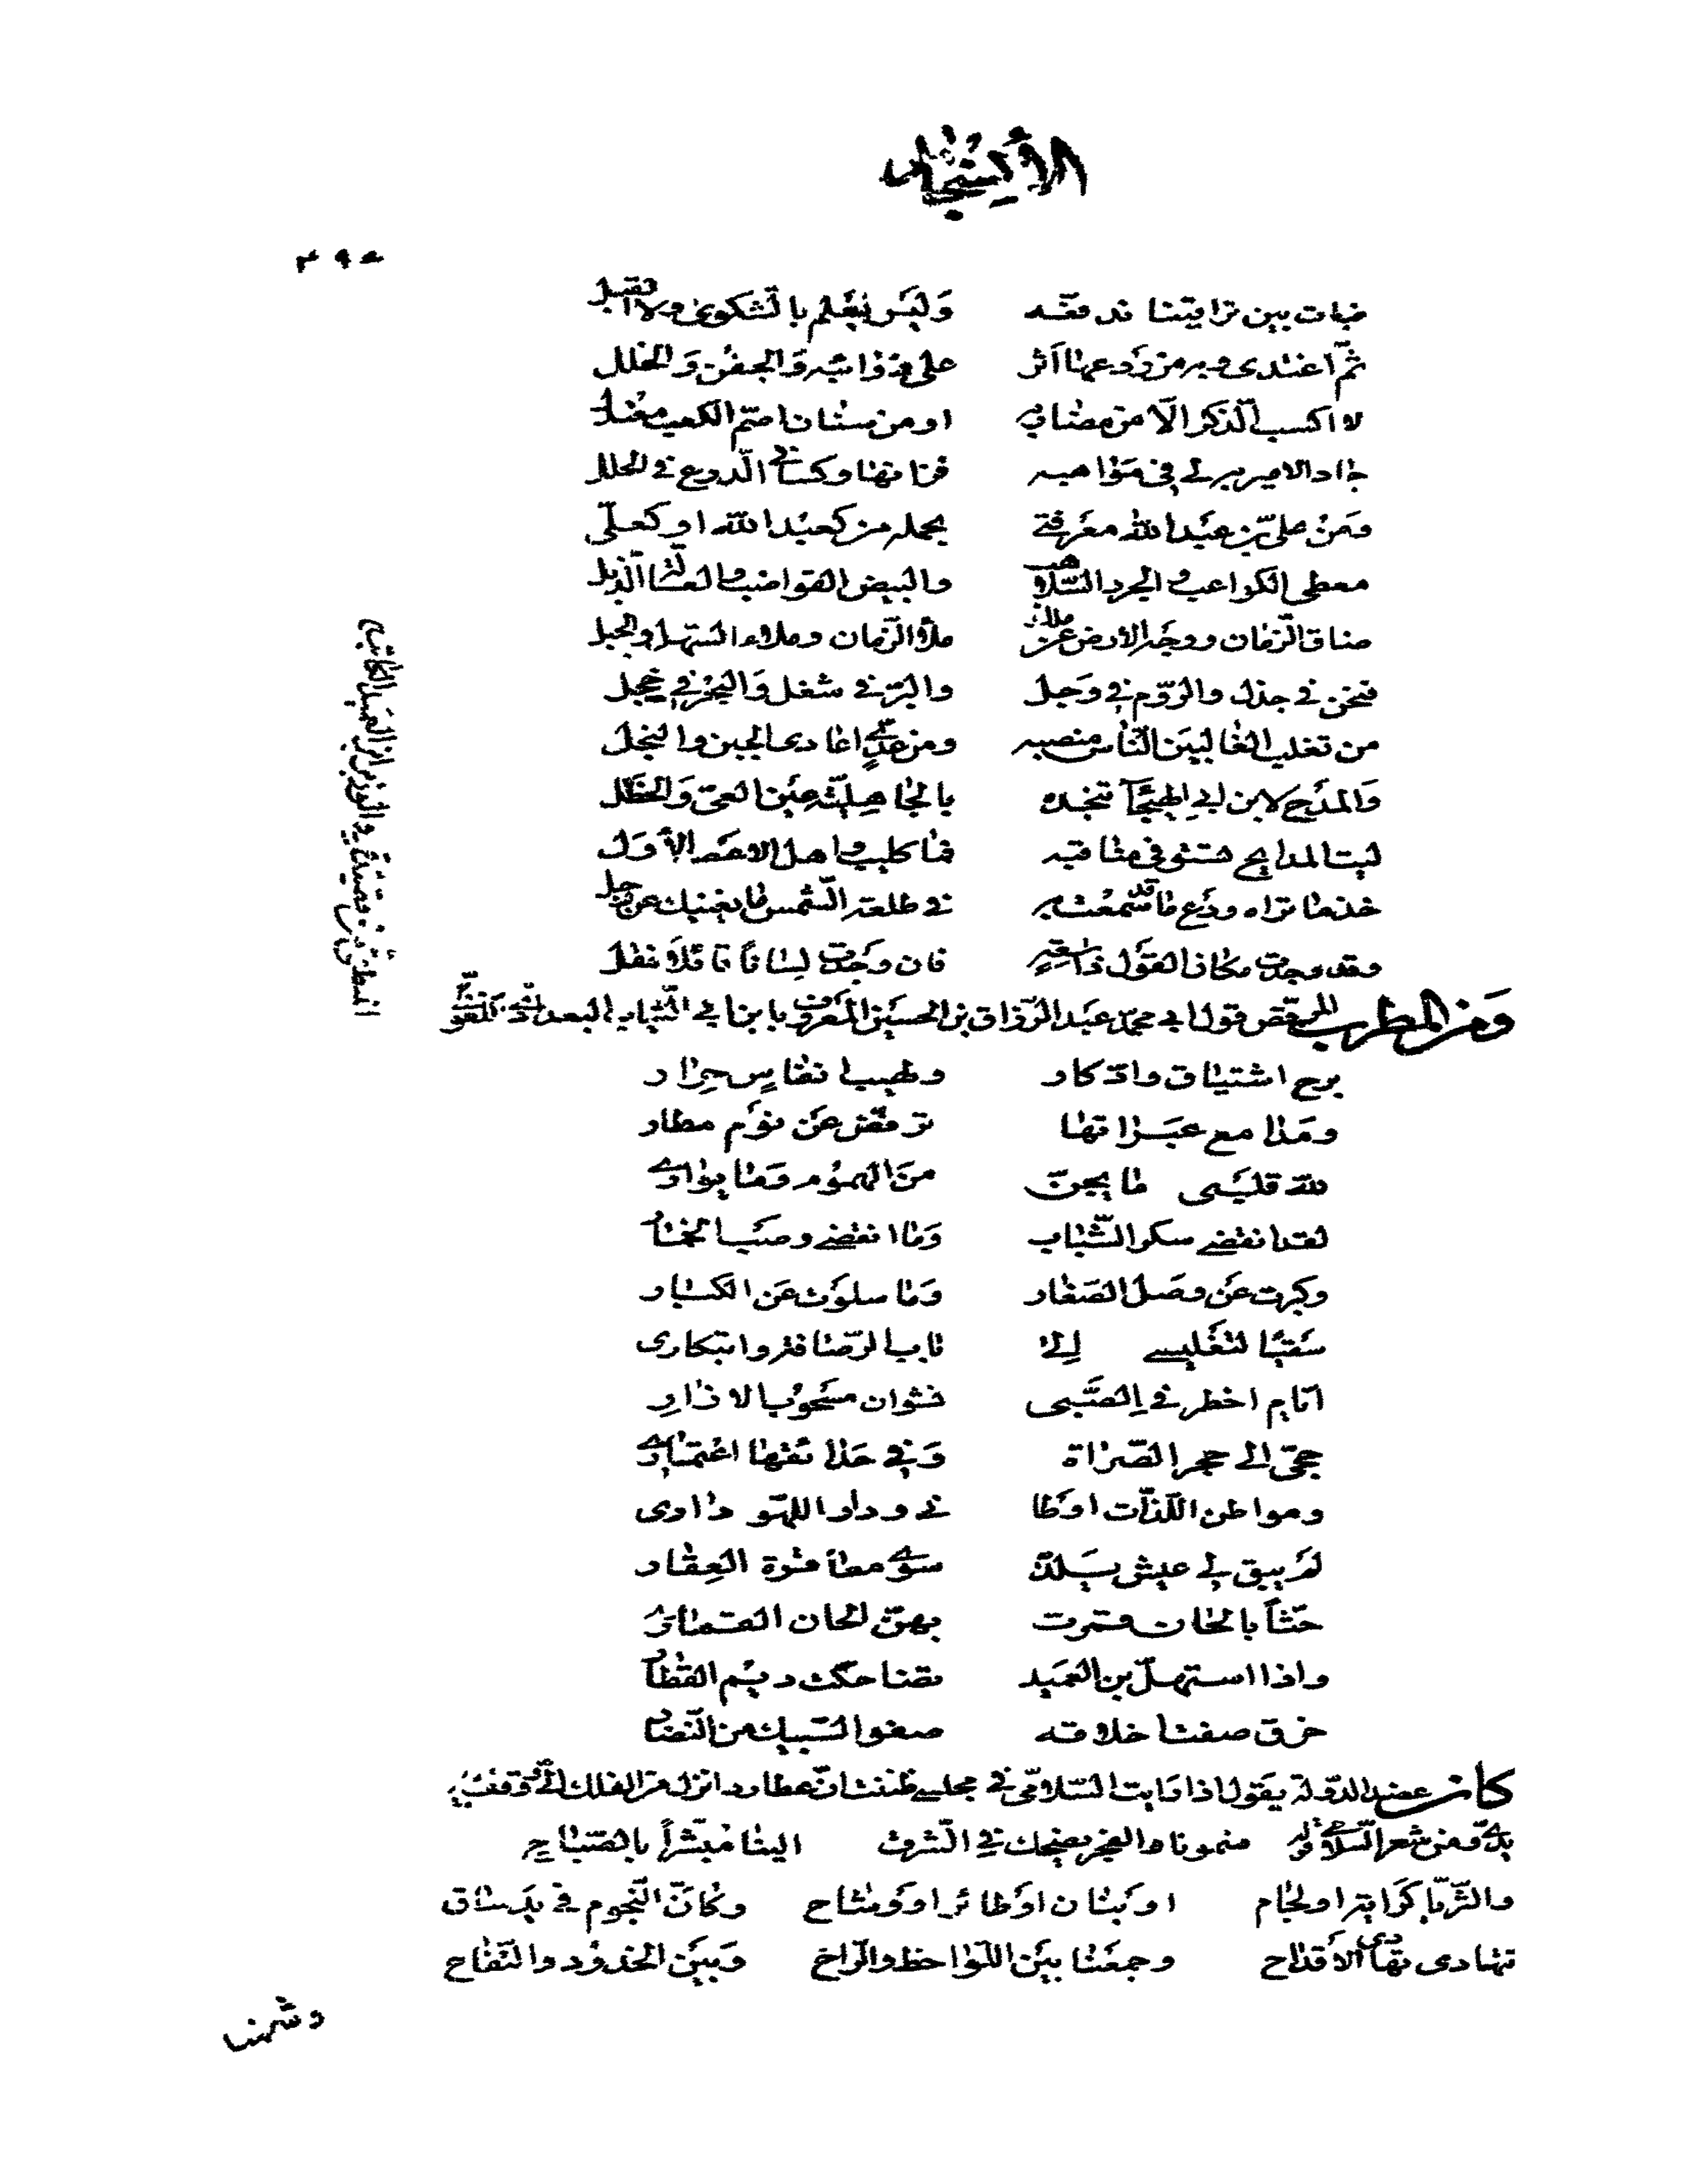 فبات بين تراقينا ندفعه وَليسَ يعلم بالشكوى ولا القبل
ثمّ اغتدى وبه من ردعها اَثر على ذوائبه وَالجفن وَالخلل
لا اكسب الّذكر الّا من مضاربه او من سنان اصمّ الكعب معتدل
جاد الامير به لي في مَواهبه فزانها وكساني الّدرع في الحلل
وَمن علىّ بن عبد الله معرفتي بحمله من كعبد الله او كعلّى
معطى الكواعب والجرد السّلاهب والبيض القواضب والعسّالة الذبل
ضاق الزّمان ووجه الارض عن ملك ملأ الزّمان وملاء السّهل والجبل
فنحن في جذل والرّوم في وَجل والبرّ في شغل وَالبحر في خجل
من تغلب الغالبين النّاس منصبه ومن عدّي اعادى الجبن والبخل
وَالمدح لابن ابي الهيجآ تنجده بالجاهليّة عين العىّ وَالخطل
ليت المدايح تستوفي مناقبه فما كليب واهل الاعصر الأول
خذ ما تراه ودَع ما قد سمعت به في طلعة الشّمس ما يغنيك عن زحل
وقد وجدت مكان القول ذا سعة فان وَجدت لساناً قائلاً فقل
وَمن المطرب المرقص قول ابي محمّد عبد الرّزاق بن الحسين المعروف بابن ابي الثّياب البغدادي اللّغوي
برح اشتياق وادّكار ولهيب انفاس حرار
ومدامع عبراتها ترفضّ عن نوم مطار
لله قلبى ما يجنّ من الهموم وَما يوارى
لقد انقضى سكر الشّباب وَما انقضى وصب الخمار
وكبرت عن وصل الصّغار وَما سلوت عن الكبار
سقياً لتغليسى الى باب الرّصافة وابتكارى
ايّام اخطر في الصّبى نشوان مسحوب الازار
حجّى الى حجر الصّراة وَفي حدائقها اعتمارى
ومواطن اللّذّات اوطانى ودار اللهو دارى
لم يبق لي عيش يلذّ سوى معاقرة العقار
حثّاً بالحان قمرت بهنّ الحان القمارى
واذا استهلّ بن العميد تضاحكت ديم القطار
خرق صفت اخلاقه صفو السّبيك من النّضار
كان عضد الدّولة يقول اذا رايت السّلامّى في مجلسى ظننت انّ عطارد انزل من الفلك الىّ ووقف بين
يدىّ ومن شعر السّلامي قوله والفجر يضحك في الشّرق الينا مبشّراً بالصّباح
والثّريا كراية او لجام او بنان او طائر او وشاح وكانّ النّجوم في يد ساق
تتهادى تهادى الاقداح وجمعنا بين اللّواحظ والرّاح وَبين الخدود والتّفاح
وشمنا